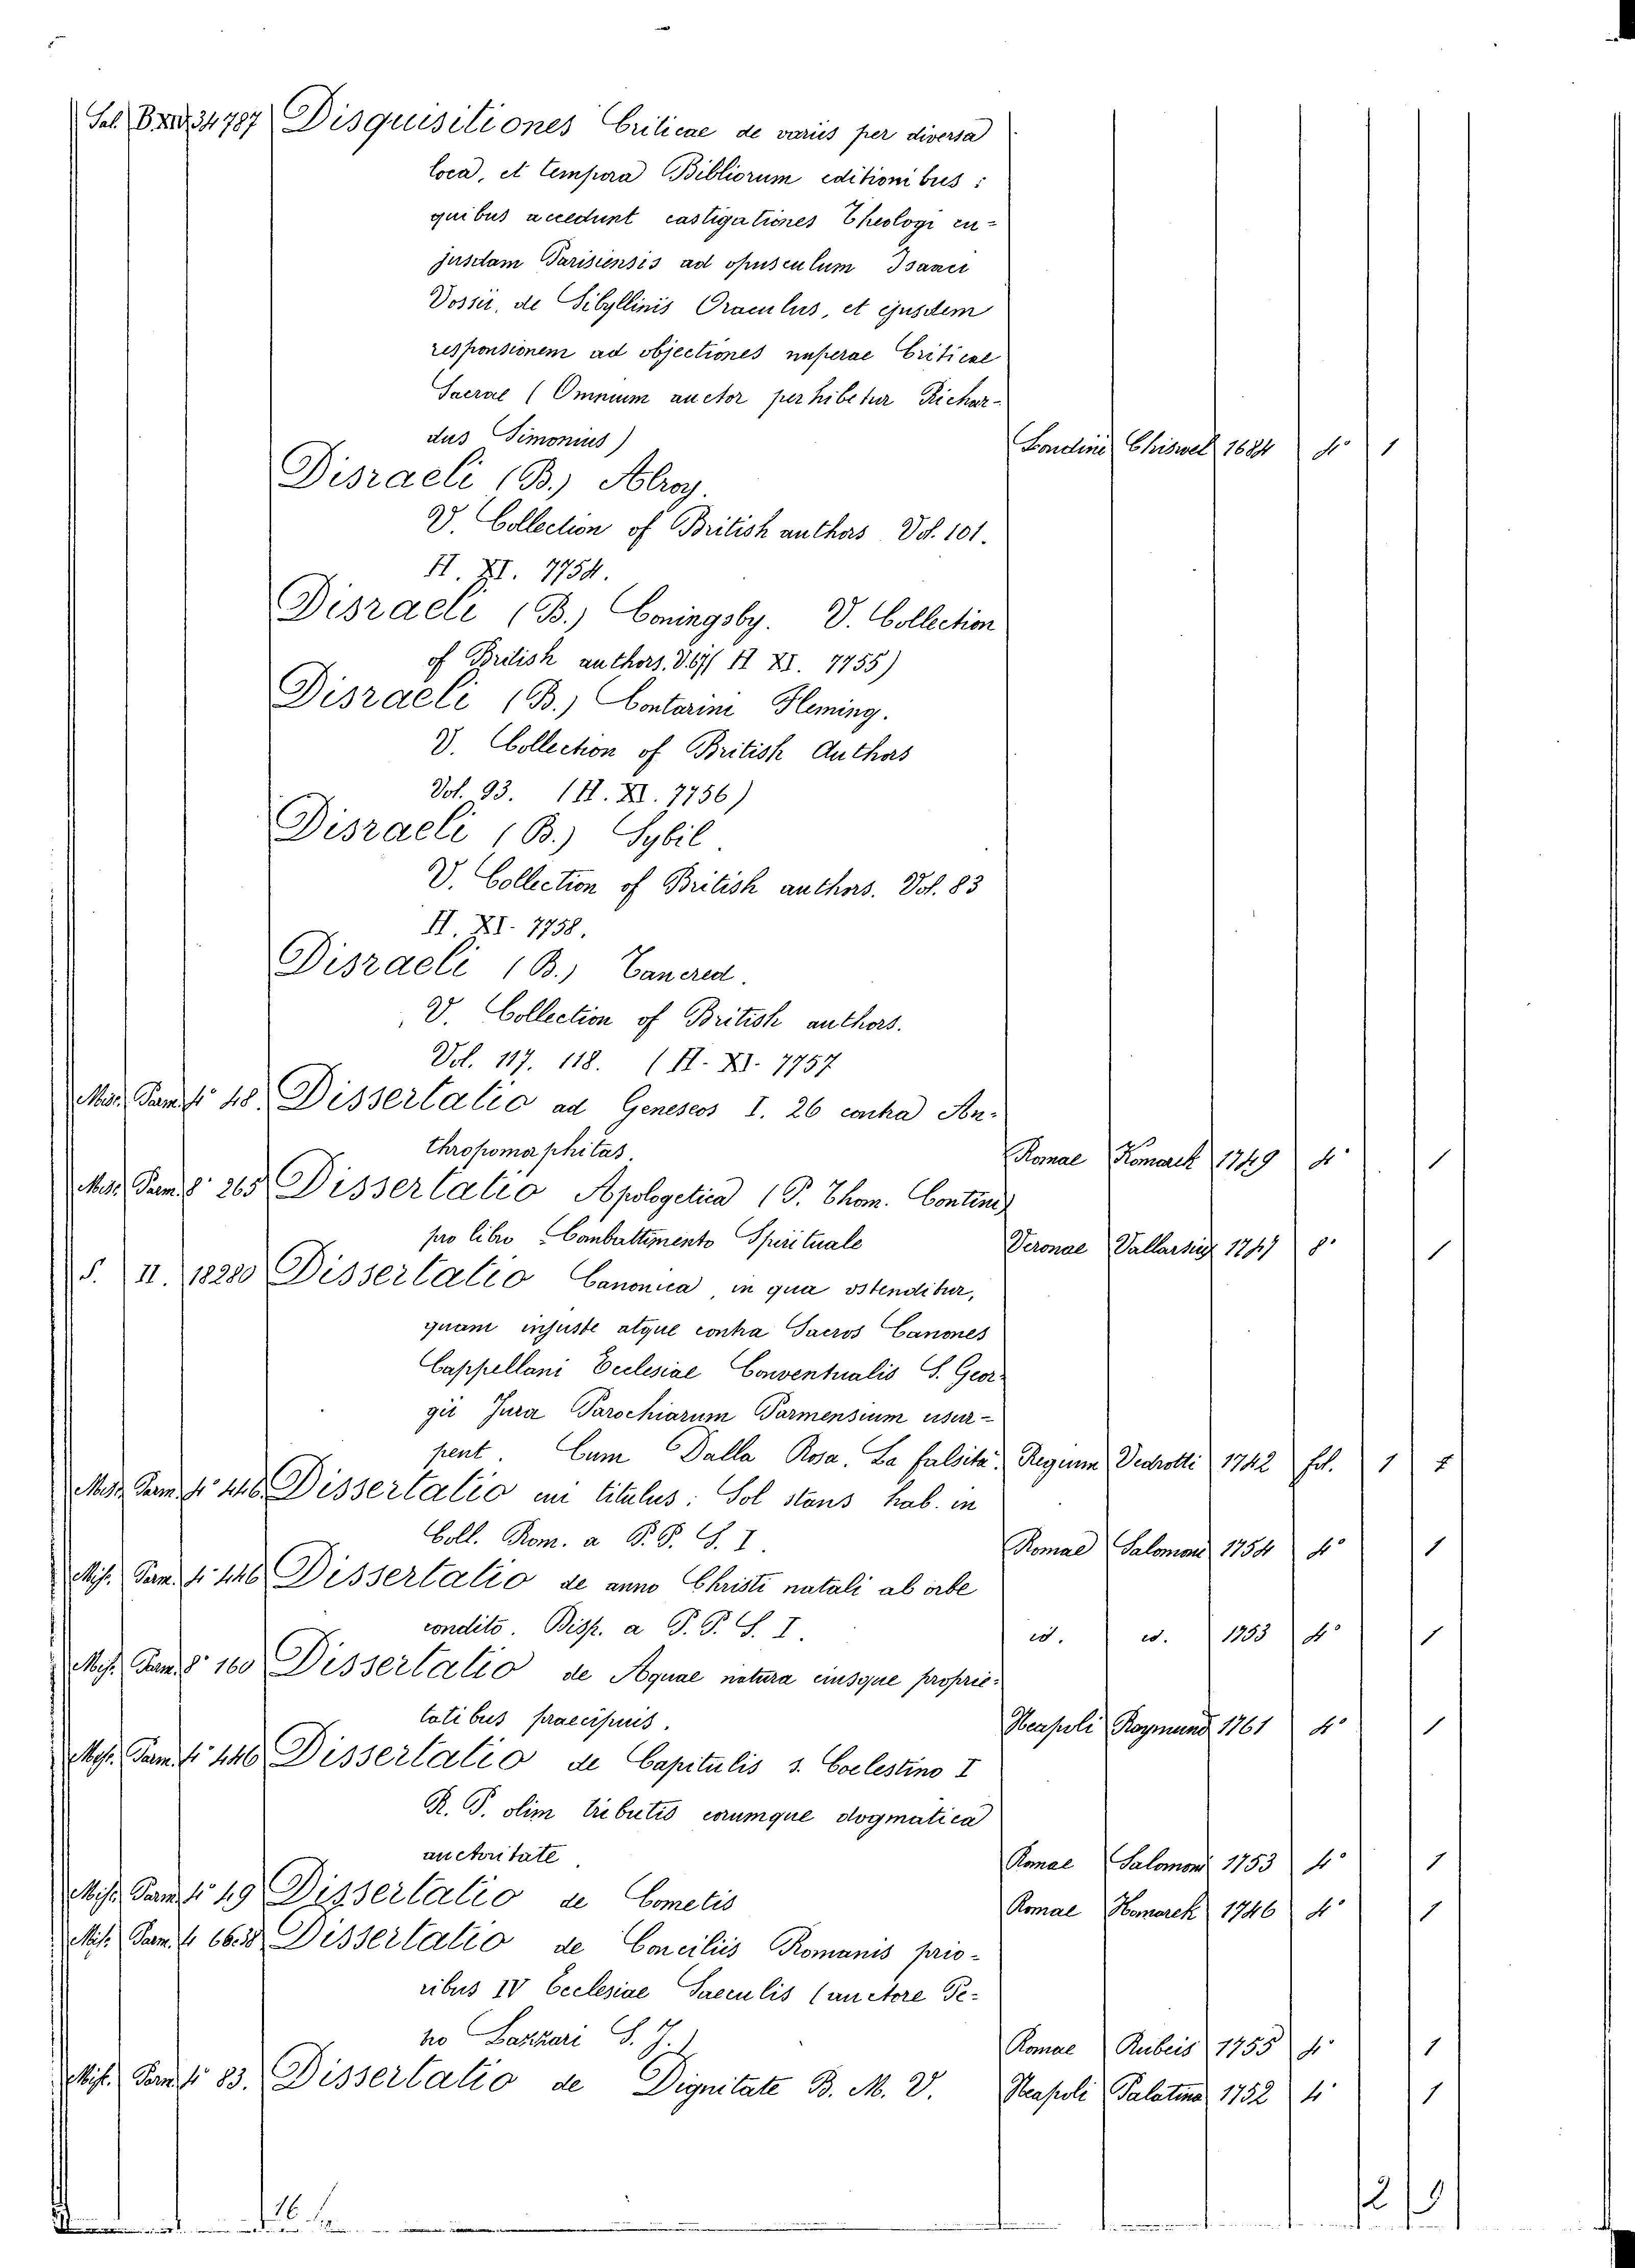 Sal. B. XII. 34787 Disquisitiones Criticae de variis per diversa
loca, et tempora Bibliorum editionibus:
quibus accedunt castigationes Theologi cu-
jusdam Parisiensis ad opusculum Isaaci
Vossii, de Sibyllinis Oraculis, et ejusdem
responsionem ad objectiones nuperae Criticae
Sacrae (Omnium auctor perhibetur Richar-
dus Simonius) Londini Chiswel 1684 4° 1
Disraeli (B.) Alroy.
V. Collection of British authors Vol. 101.
H. XI. 7754.
Disraeli (B.) Coningsby. V. Collection
of British authors. V. 67 (H XI. 7755)
Disraeli (B.) Contarini Fleming.
V. Collection of British Authors
Vol. 93. (H. XI. 7756)
Disraeli (B.) Sybil.
V. Collection of British authors. Vol. 83
H. XI. 7758.
Disraeli (B.) Tancred.
V. Collection of British authors.
Vol. 117. 118. (H. XI. 7757
Misc. Parm. 4° 48. Dissertatio ad Geneseos I. 26 contra An-
thropomorphitas. Romae Komarek 1749 4° 1
Misc. Parm. 8° 265 Dissertatio Apologetica (P. Thom. Contini)
pro libro Combattimento Spirituale Veronae Vallarsii 1747 8° 1
S. II. 18280 Dissertatio Canonica, in qua ostenditur,
quam injuste atque contra Sacros Canones
Cappellani Ecclesiae Conventualis S. Geor-
gii Jura Parochiarum Parmensium usur-
pent. Cum Dalla Rosa. La falsità. Regium Vedrotti 1742 fol. 1
Misc. Parm. 4° 446 Dissertatio cui titulus: Sol stans hab. in
Coll. Rom. a P. P. S. I. Romae Salomoni 1754 4° 1
Misc. Parm. 4° 446 Dissertatio de anno Christi natali ab orbe
condito. Disp. a P. P. S. I. id. id. 1753 4° 1
Misc. Parm. 8° 160 Dissertatio de Aquae natura eiusque proprie-
tatibus praecipuis. Neapoli Raymund 1761 4° 1
Misc. Parm. 4° 446 Dissertatio de Capitulis S. Coelestino I
R. P. olim tributis eorumque dogmatica
auctoritate Romae Salomoni 1753 4° 1
Misc. Parm. 4° 49 Dissertatio de Cometis Romae Komarek 1746 4° 1
Misc. Parm. 4° Dissertatio de Conciliis Romanis prio-
ribus IV Ecclesiae Saeculis (auctore Pe-
tro Lazzari S. J.) Romae Rubeis 1755 4° 1
Misc. Parm. 4° 83. Dissertatio de Dignitate B. M. V. Neapoli Palatina 1752 4° 1
16 2 9